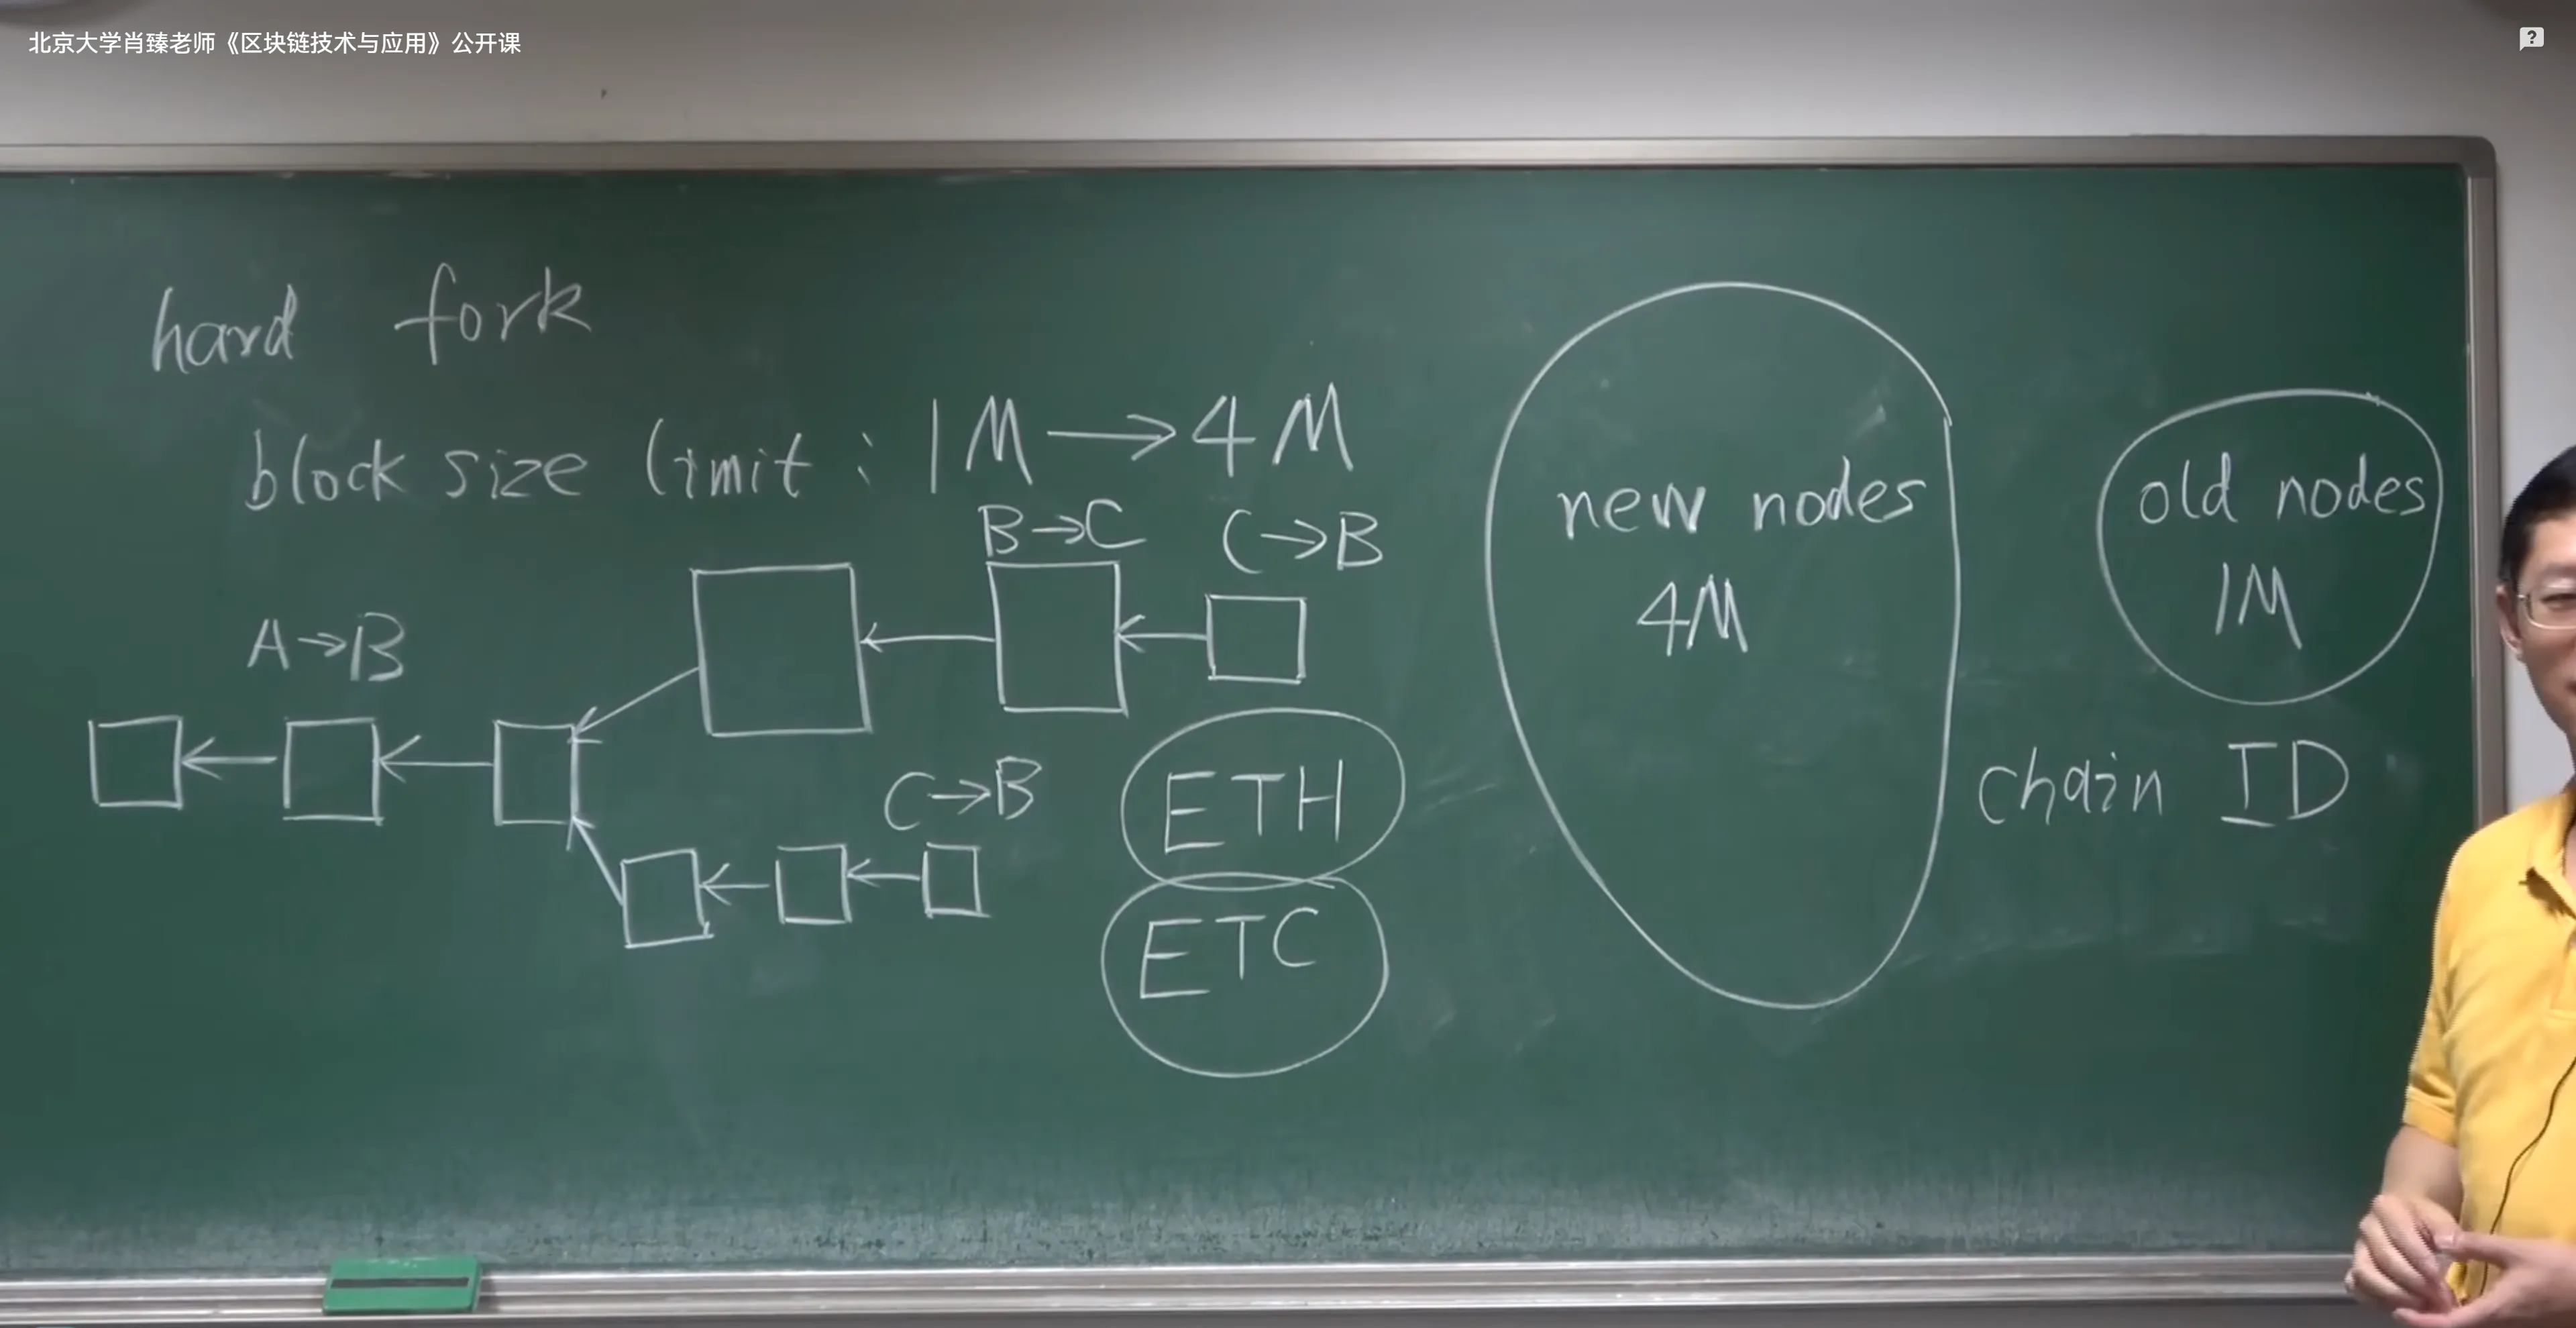 北京大学肖臻老师《区块链技术与应用》公开课
hard fork
block size limit : 1M → 4M
B→C
C→B
A→B
C→B
ETH
ETC
new nodes
4M
old nodes
1M
chain ID